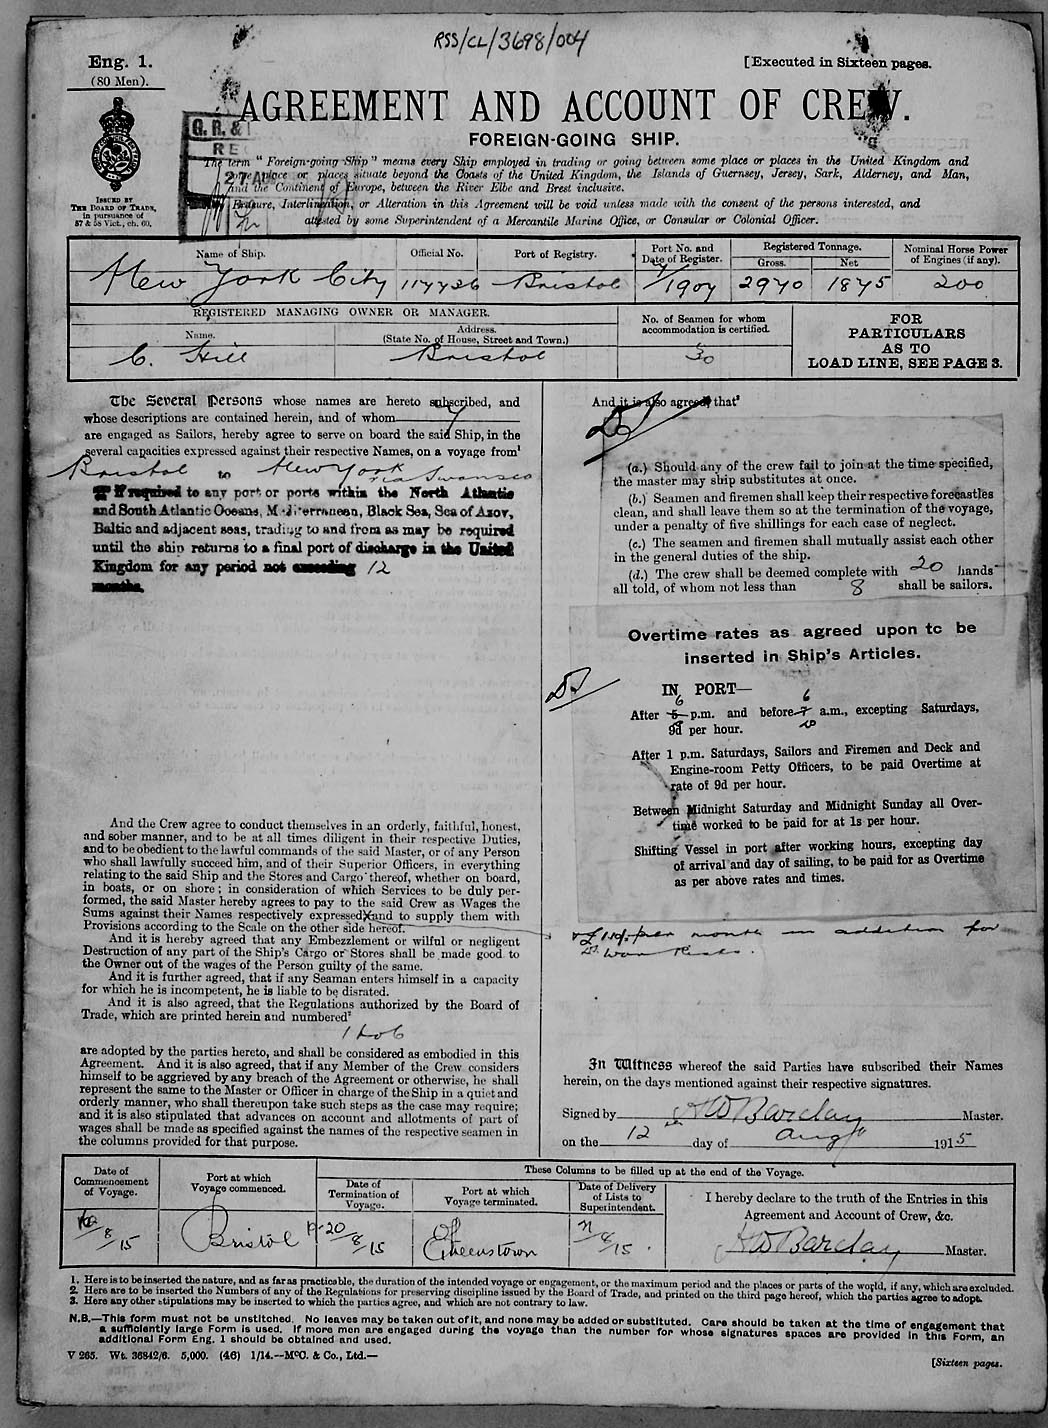 RSS/CL/3698/004
Eng. 1.
(80 Men).
[Executed in Sixteen pages.
AGREEMENT AND ACCOUNT OF CREW.
FOREIGN-GOING SHIP.
ISSUED BY
THE BOARD OF TRADE,
in pursuance of
57 & 58 Vict., ch. 60.
G. R. &
RE
27 AU
The term "Foreign-going Ship" means every Ship employed in trading or going between some place or places in the United Kingdom and
some place or places situate beyond the Coasts of the United Kingdom, the Islands of Guernsey, Jersey, Sark, Alderney, and Man,
and the Continent of Europe, between the River Elbe and Brest inclusive.
Erasure, Interlineation, or Alteration in this Agreement will be void unless made with the consent of the persons interested, and
attested by some Superintendent of a Mercantile Marine Office, or Consular or Colonial Officer.
Name of Ship. Official No. Port of Registry. Port No. and Date of Register. Registered Tonnage. Gross. Net Nominal Horse Power of Engines (if any).
New York City 117726 Bristol 4/1907 2970 1875 200
REGISTERED MANAGING OWNER OR MANAGER.
Name. Address. (State No. of House, Street and Town.) No. of Seamen for whom accommodation is certified.
C. Hill Bristol 30
FOR
PARTICULARS
AS TO
LOAD LINE, SEE PAGE 3.
The Several Persons whose names are hereto subscribed, and
whose descriptions are contained herein, and of whom 7
are engaged as Sailors, hereby agree to serve on board the said Ship, in the
several capacities expressed against their respective Names, on a voyage from¹
Bristol to New York
via Swansea
If required to any port or ports within the North Atlantic
and South Atlantic Oceans, Mediterranean, Black Sea, Sea of Azov,
Baltic and adjacent seas, trading to and from as may be required
until the ship returns to a final port of discharge in the United
Kingdom for any period not exceeding 12
months.
And the Crew agree to conduct themselves in an orderly, faithful, honest,
and sober manner, and to be at all times diligent in their respective Duties,
and to be obedient to the lawful commands of the said Master, or of any Person
who shall lawfully succeed him, and of their Superior Officers, in everything
relating to the said Ship and the Stores and Cargo thereof, whether on board,
in boats, or on shore; in consideration of which Services to be duly per-
formed, the said Master hereby agrees to pay to the said Crew as Wages the
Sums against their Names respectively expressed X and to supply them with
Provisions according to the Scale on the other side hereof.
And it is hereby agreed that any Embezzlement or wilful or negligent
Destruction of any part of the Ship's Cargo or Stores shall be made good to
the Owner out of the wages of the Person guilty of the same.
And it is further agreed, that if any Seaman enters himself in a capacity
for which he is incompetent, he is liable to be disrated.
And it is also agreed, that the Regulations authorized by the Board of
Trade, which are printed herein and numbered²
1 to 6
are adopted by the parties hereto, and shall be considered as embodied in this
Agreement. And it is also agreed, that if any Member of the Crew considers
himself to be aggrieved by any breach of the Agreement or otherwise, he shall
represent the same to the Master or Officer in charge of the Ship in a quiet and
orderly manner, who shall thereupon take such steps as the case may require;
and it is also stipulated that advances on account and allotments of part of
wages shall be made as specified against the names of the respective seamen in
the columns provided for that purpose.
And it is also agreed, that³
(a.) Should any of the crew fail to join at the time specified,
the master may ship substitutes at once.
(b.) Seamen and firemen shall keep their respective forecastles
clean, and shall leave them so at the termination of the voyage,
under a penalty of five shillings for each case of neglect.
(c.) The seamen and firemen shall mutually assist each other
in the general duties of the ship.
(d.) The crew shall be deemed complete with 20 hands
all told, of whom not less than 8 shall be sailors.
Overtime rates as agreed upon to be
inserted in Ship's Articles.
IN PORT—
6 6
After 5 p.m. and before 7 a.m., excepting Saturdays,
9d per hour.
After 1 p.m. Saturdays, Sailors and Firemen and Deck and
Engine-room Petty Officers, to be paid Overtime at
rate of 9d per hour.
Between Midnight Saturday and Midnight Sunday all Over-
time worked to be paid for at 1s per hour.
Shifting Vessel in port after working hours, excepting day
of arrival and day of sailing, to be paid for as Overtime
as per above rates and times.
per month in addition for
War Risks.
In Witness whereof the said Parties have subscribed their Names
herein, on the days mentioned against their respective signatures.
Signed by AW Barclay Master.
on the 12th day of Aug 1915
Date of Commencement of Voyage. Port at which Voyage commenced. These Columns to be filled up at the end of the Voyage.
Date of Termination of Voyage. Port at which Voyage terminated. Date of Delivery of Lists to Superintendent. I hereby declare to the truth of the Entries in this Agreement and Account of Crew, &c.
8/15 Bristol 20/8/15 Off Queenstown 8/15. AW Barclay Master.
1. Here is to be inserted the nature, and as far as practicable, the duration of the intended voyage or engagement, or the maximum period and the places or parts of the world, if any, which are excluded.
2. Here are to be inserted the Numbers of any of the Regulations for preserving discipline issued by the Board of Trade, and printed on the third page hereof, which the parties agree to adopt.
3. Here any other stipulations may be inserted to which the parties agree, and which are not contrary to law.
N.B.—This form must not be unstitched. No leaves may be taken out of it, and none may be added or substituted. Care should be taken at the time of engagement that
a sufficiently large Form is used. If more men are engaged during the voyage than the number for whose signatures spaces are provided in this Form, an
additional Form Eng. 1 should be obtained and used.
V 265. Wt. 36842/6. 5,000. (46) 1/14.—McC. & Co., Ltd.—
[Sixteen pages.